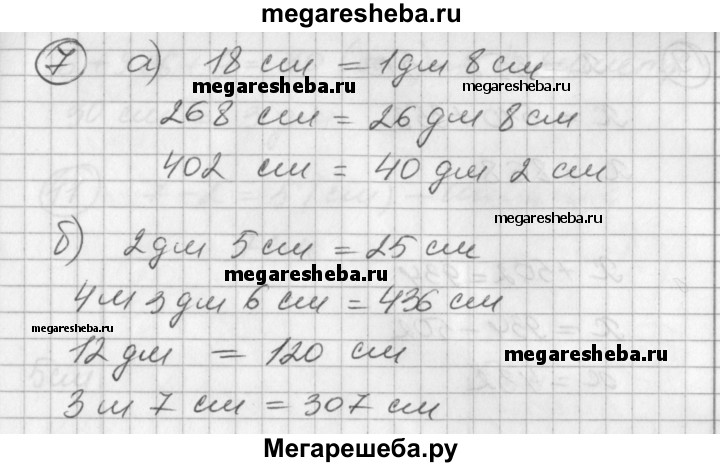 megaresheba.ru
7 а) 18 см = 1дм 8 см
megaresheba.ru
megaresheba.ru
268 см = 26 дм 8 см
402 см = 40 дм 2 см
megaresheba.ru
б) 2дм 5 см = 25 см
megaresheba.ru
4 м 3 дм 6 см = 436 см
megaresheba.ru
12 дм = 120 см
megaresheba.ru
3 м 7 см = 307 см
Мегарешеба.ру